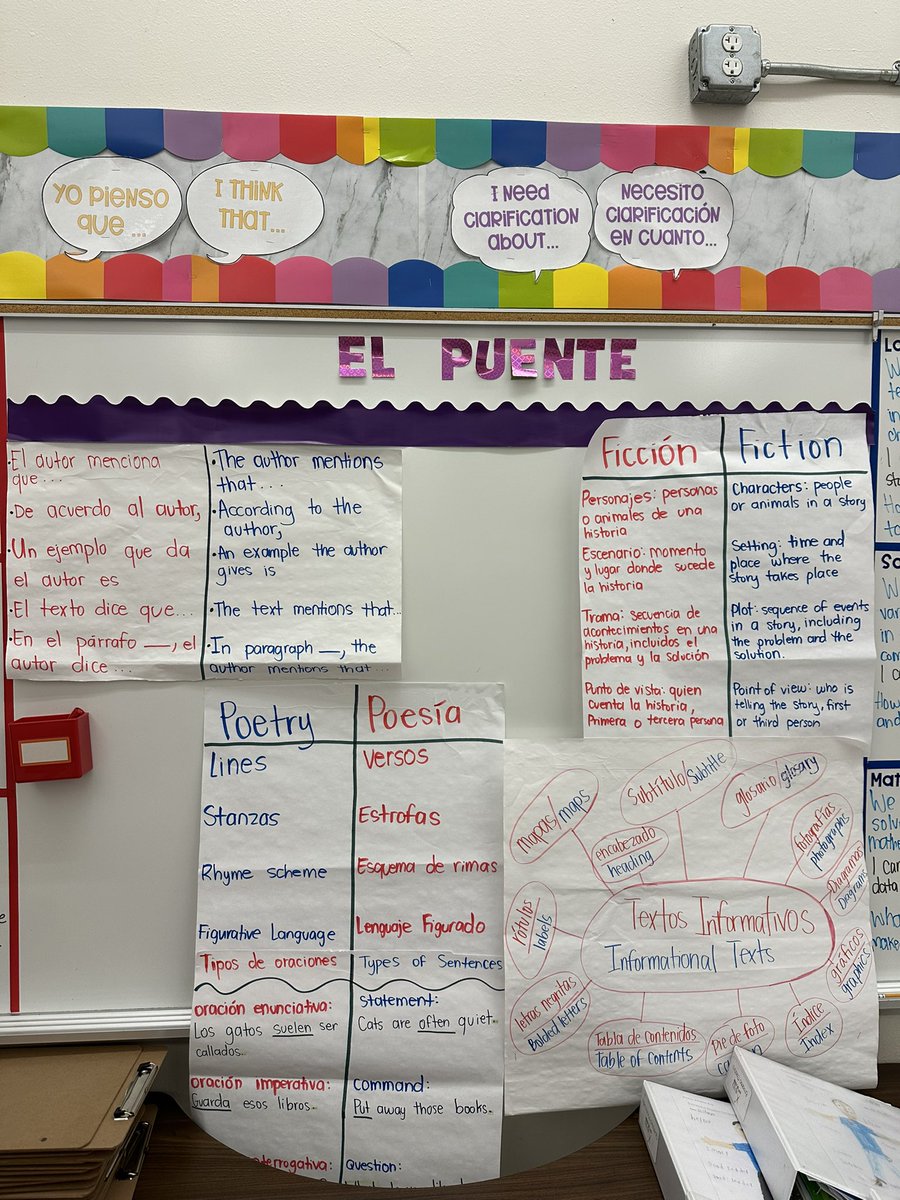 Yo pienso
que...
I think
that...
I need
clarification
about...
Necesito
clarificación
en cuanto...
EL PUENTE
•El autor menciona
que...
•De acuerdo al autor,
•Un ejemplo que da
el autor es
•El texto dice que...
•En el párrafo __, el
autor dice...
•The author mentions
that...
•According to the
author,
•An example the author
gives is
•The text mentions that...
•In paragraph __, the
author mentions that...
Ficción
Personajes: personas
o animales de una
historia
Escenario: momento
y lugar donde sucede
la historia
Trama: secuencia de
acontecimientos en una
historia, incluidos el
problema y la solución
Punto de vista: quien
cuenta la historia,
Primera o tercera persona
Fiction
Characters: people
or animals in a story
Setting: time and
place where the
story takes place
Plot: sequence of events
in a story, including
the problem and the
solution.
Point of view: who is
telling the story, first
or third person
Poetry
Lines
Stanzas
Rhyme scheme
Figurative Language
Poesía
Versos
Estrofas
Esquema de rimas
Lenguaje Figurado
Tipos de oraciones
oración enunciativa:
Los gatos suelen ser
callados.
oración imperativa:
Guarda esos libros.
Types of Sentences
Statement:
Cats are often quiet.
Command:
Put away those books.
Question:
mapas/maps
Subtítulo/Subtitle
glosario/glosary
encabezado
heading
fotografías
photographs
Diagramas
Diagrams
rótulos
labels
Textos Informativos
Informational Texts
gráficos
graphics
letras negritas
Bolded letters
Tabla de contenidos
Table of Contents
Pie de foto
Índice
Index
I
I can
data